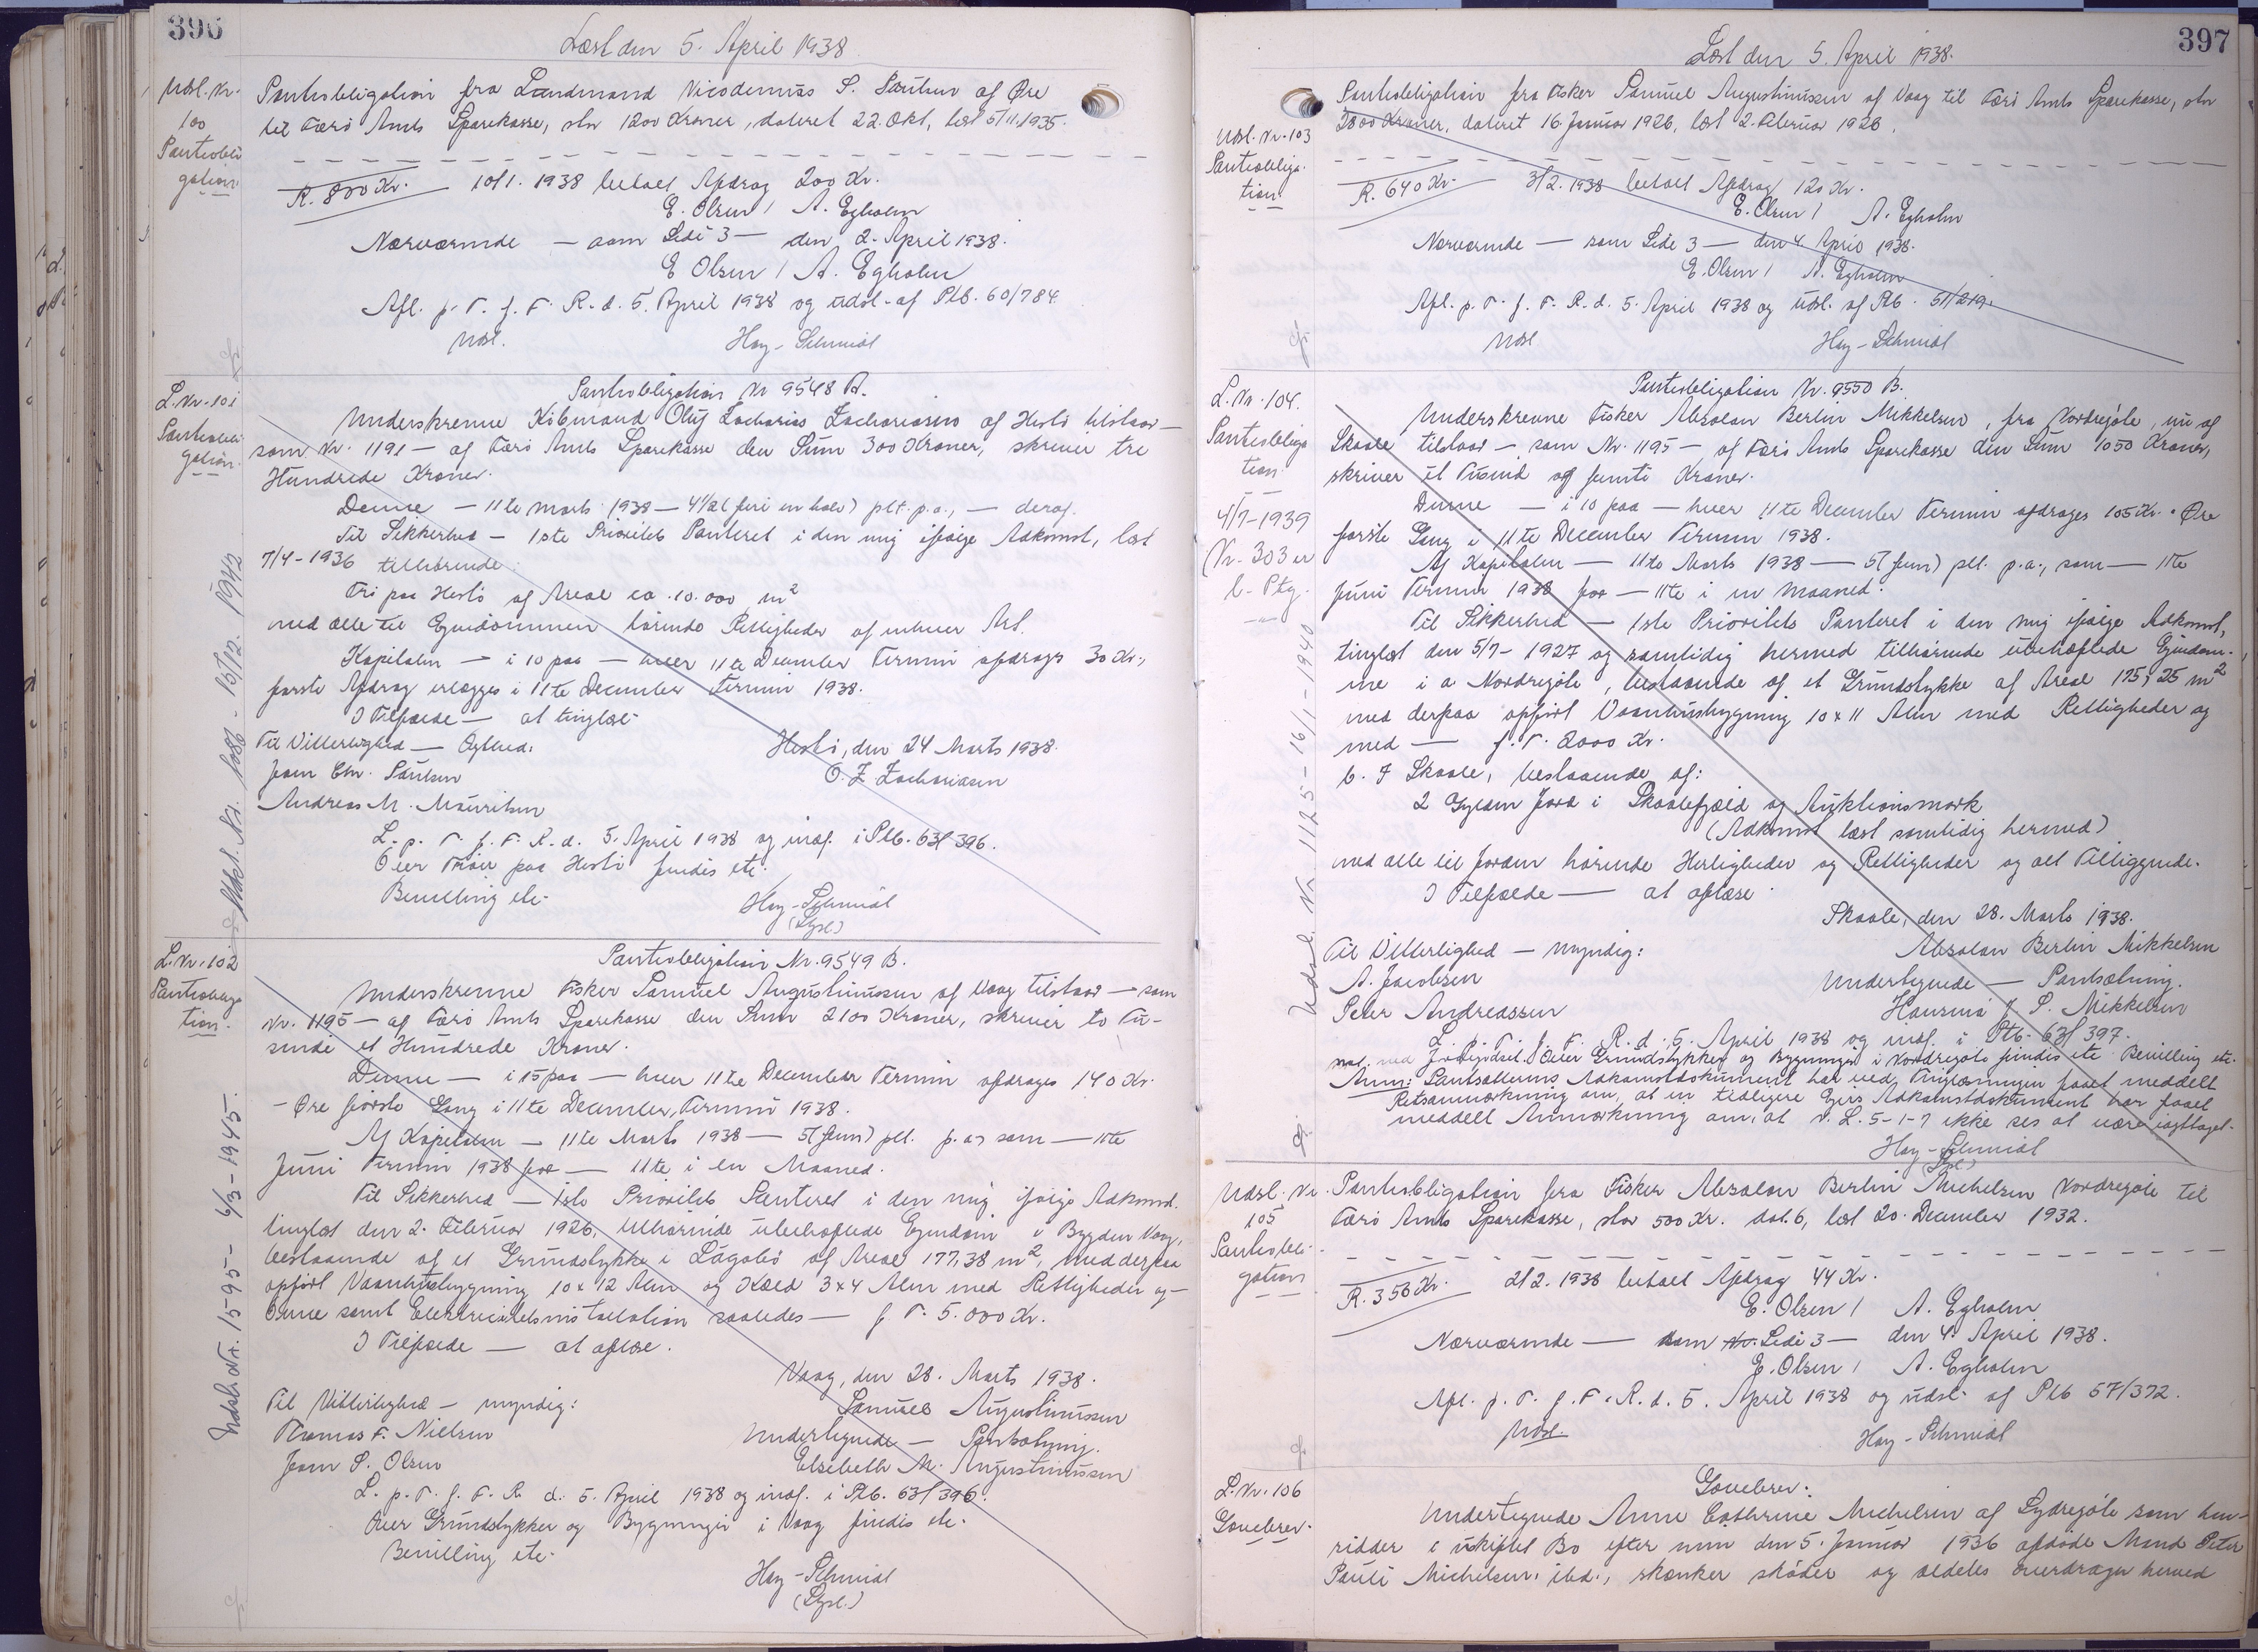 396
Læst den 5. April 1938
Udsl. Nr.
100
Pantobli
gation
Pantobligation fra Landmand Nicodemus S. Poulsen af Øre
til Færø Amts Sparekasse, stor 1200 Kroner, dateret 22. Okt, læst 5/11.1935.
R. 800 Kr. 10/1. 1938 betalt Afdrag 200 Kr.
E. Olsen / A. Egholm
Nærværende — som Side 3 — den 2. April 1938.
E Olsen / A. Egholm
Afl. p. T. f. F. R. d. 5. April 1938 og udsl. af Ptb. 60/784
Udsl. Hoy-Schmidt
L. Nr. 101
Pantobli
gation.
Udsl. Nr. 1086 - 15/12. 1942
Pantobligation Nr 9548 B.
Underskrevne Købmand Oluf Zacharias Zachariasen af Hestø tilstaar —
som Nr. 1191 — af Færø Amts Sparekasse den Sum 300 Kroner, skriver tre
Hundrede Kroner.
Denne — 11te Marts 1938 — 4½ (fire en halv) pct. p.a., — deraf.
Til Sikkerhed — 1ste Prioritets Panteret i den mig ifølge Adkomst, læst
7/4 - 1936 tilhørende
Tri paa Hestø af Areal ca. 10.000 m²
med alle til Ejendommen hørende Rettigheder af enhver Art.
Kapitalen — i 10 paa — hver 11te December Termin afdrages 30 Kr.,
første Afdrag erlægges i 11te December Termin 1938.
I Tilfælde — at tinglæse
Til Vitterlighed — Ægthed: Hestø, den 24 Marts 1938.
Joen Chr. Poulsen O. Z. Zachariasen
Andreas M. Mouritsen
L. p. T. f. F. R. d. 5. April 1938 og indf. i Ptb. 63/396.
Over Trøer paa Hestø findes etc.
Bevilling etc. Hoy-Schmidt
(Sysl.)
L. Nr. 102
Pantobliga
tion.
Udsl. Nr. 1595 - 6/3 - 1945.
Pantobligation Nr. 9549 B.
Underskrevne Fisker Samuel Augustinussen af Vaag tilstaar — som
Nr. 1195 — af Færø Amts Sparekasse den Sum 2100 Kroner, skriver to Tu-
sinde et Hundrede Kroner.
Denne — i 15 paa — hver 11te December Termin afdrages 140 Kr.
- Øre første Gang i 11te December Termin 1938.
Af Kapitalen — 11te Marts 1938 — 5 (fem) pct. p. a., som — 11te
Juni Termin 1938 for — 11te i en Maaned.
Til Sikkerhed — 1ste Prioritets Panteret i den mig ifølge Adkomst,
tinglæst den 2. Februar 1926, tilhørende ubehæftede Ejendom i Bygden Vaag,
bestaaende af et Grundstykke i Lagabø af Areal 177,38 m², med derpaa
opført Vaaningsbygning 10 x 12 Alen og Kæld 3 x 4 Alen med Rettigheder og —
denne samt Elektricitetsinstallation saaledes — f T. 5.000 Kr.
I Tilfælde — at aflæse.
Vaag, den 28. Marts 1938.
Til Vitterlighed — myndig: Samuel Augustinussen
Thomas F. Nielsen Undertegnede — Pantsætning.
Joen P. Olsen Elsebeth M. Augustinussen
L. p. T. f. F. R. d. 5. April 1938 og indf. i Ptb. 63/396.
Over Grundstykker og Bygninger i Vaag findes etc.
Bevilling etc.
Hoy-Schmidt
(Sysl.)
397
Læst den 5. April 1938.
Udsl. Nr. 103
Pantobliga
tion
Pantobligation fra Fisker Samuel Augustinussen af Vaag til Færø Amts Sparekasse, stor
2800 Kroner, dateret 16. Januar 1926, læst 2. Februar 1926.
R. 640 Kr. 3/2. 1938 betalt Afdrag 120 Kr.
E. Olsen / A. Egholm
Nærværende — som Side 3 — den 4 April 1938.
E. Olsen / A. Egholm
Afl. p. T. f. F. R. d. 5. April 1938 og Udsl. af Ptb. 51/219.
Udsl Hoy-Schmidt
L. Nr. 104.
Pantobliga
tion
4/7 - 1939
(Nr. 303 er
b. Ptg.
Udsl. Nr. 1125 - 16/1 - 1940
Pantobligation Nr. 9550 B.
Underskrevne Fisker Absolon Berlin Mikkelsen, fra Nordregøte, nu af
Skaale tilstaar — som Nr. 1195 — af Færø Amts Sparekasse den Sum 1050 Kroner,
skriver et Tusind og femti Kroner.
Denne — i 10 paa — hver 11te December Termin afdrages 105 Kr. - Øre
første Gang i 11te December Termin 1938.
Af Kapitalen — 11te Marts 1938 — 5 (fem) pct. p.a., som — 11te
Juni Termin 1938 for — 11te i en Maaned.
Til Sikkerhed — 1ste Prioritets Panteret i den mig ifølge Adkomst,
tinglæst den 5/7 - 1927 og samtidig hermed tilhørende ubehæftede Ejendom-
me i a Nordregøte, bestaaende af et Grundstykke af Areal 175,25 m²
med derpaa opført Vaaningsbygning 10 x 11 Alen med Rettigheder og
med — f. T. 2000 Kr.
b. I Skaale, bestaaende af:
2 Gylden Jord i Skaalefjæld og Auktionsmark
(Adkomst læst samtidig hermed)
med alle til Jorden hørende Herligheder og Rettigheder og alt Tilliggende.
I Tilfælde — at aflæse
Skaale, den 28. Marts 1938.
Til Vitterlighed — myndig: Absolon Berlin Mikkelsen
A. Jacobsen Undertegnede — Pantsætning.
Peter Andreassen Hansina J. S. Mikkelsen
L. p. T. f. F. R. d. 5. April 1938 og indf. i Ptb. 63/397.
Over Grundstykker og Bygninger i Nordregøte findes etc Bevilling etc.
Anm: Pantsætterens Adkomstdokument har ved Tinglæsningen faaet meddelt
Retsanmærkning om, at en tidligere Ejers Adkomstdokument har faaet
meddelt Anmærkning om, at N. L. 5-1-7 ikke ses at være iagttaget.
Hoy-Schmidt
(Sysl)
Udsl. Nr.
105
Pantobli-
gation
Pantobligation fra Fisker Absolon Berlin Michelsen Nordregøte til
Færø Amts Sparekasse, stor 500 Kr. dat. 6, læst 20. December 1932.
R. 356 Kr. 2/2. 1938 betalt Afdrag 44 Kr.
E. Olsen / A. Egholm
Nærværende — som Side 3 — den 4. April 1938.
E. Olsen / A. Egholm
Afl. p. T. f. F. R. d. 5. April 1938 og udsl. af Ptb 57/372.
Udsl. Hoy-Schmidt
L. Nr. 106
Gavebrev.
Gavebrev.
Undertegnede Anne Cathrine Michelsen af Sydregøte som hen-
sidder i uskiftet Bo efter min den 5. Januar 1936 afdøde Mand Peter
Pauli Michelsen, ibd., skænker skøder og aldeles overdrager hermed